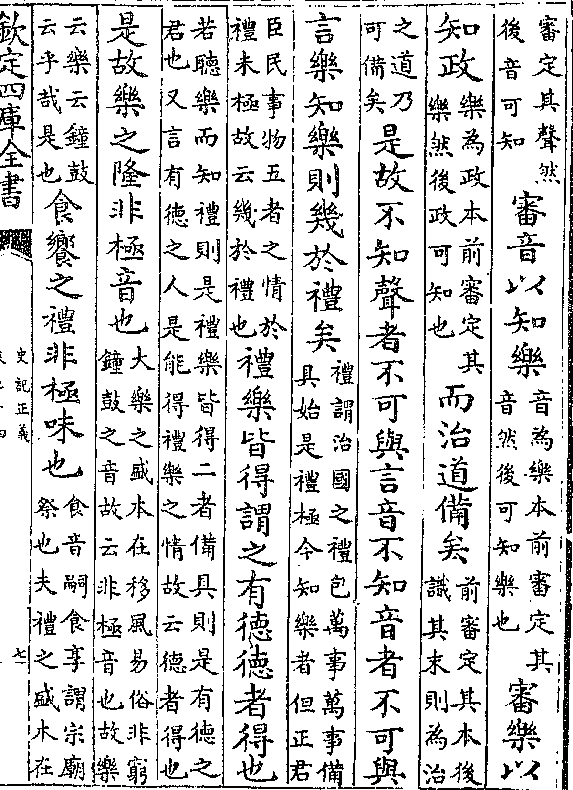 審定其聲然
後音可知
審音以知樂
音為樂本前審定其
音然後可知樂也
審樂以
知政
樂為政本前審定其
樂然後政可知也
而治道備矣
前審定其本後
識其末則為治
之道乃
可備矣
是故不知聲者不可與言音不知音者不可與
言樂知樂則幾於禮矣
禮謂治國之禮包萬事萬事備
具始是禮極今知樂者但正君
臣民事物五者之情於
禮未極故云幾於禮也
禮樂皆得謂之有德德者得也
若聽樂而知禮則是禮樂皆得二者備具則是有德之
君也又言有德之人是能得禮樂之情故云德者得也
是故樂之隆非極音也
大樂之盛本在移風易俗非窮
鐘鼓之音故云非極音也故樂
云樂云鐘鼓
云乎哉是也
食饗之禮非極味也
食音嗣食享謂宗廟
祭也夫禮之盛本在
欽定四庫全書
史記正義